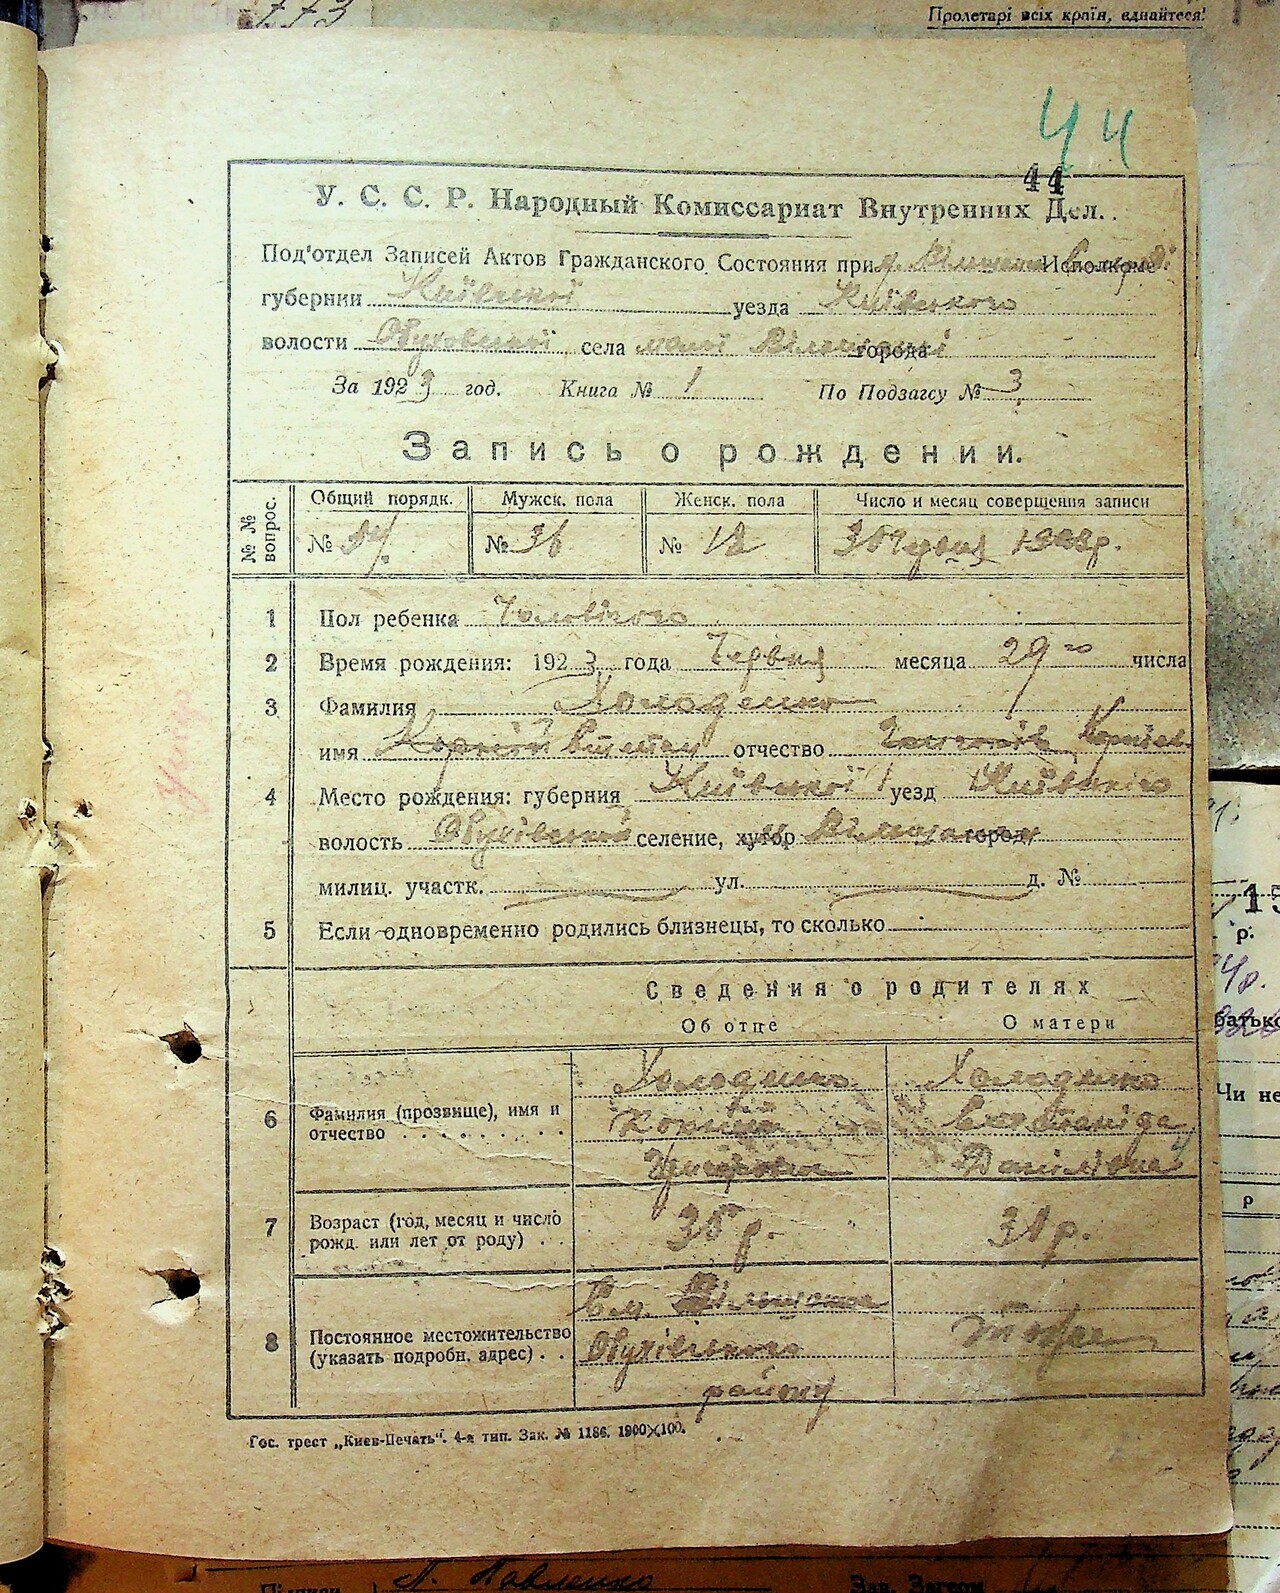 773
Пролетарі всіх країн, єднайтеся!
44
44
У. С. С. Р. Народный Комиссариат Внутренних Дел.
Под'отдел Записей Актов Гражданского Состояния при Исполкоме
губернии Київської уезда Київського
волости Обуховської села малої Вільшанки города
За 1923 год. Книга № 1 По Подзагсу № 3
Запись о рождении.
№ № вопрос.
Общий порядк. Мужск. пола Женск. пола Число и месяц совершения записи
№ № 36 № 18 30
1 Пол ребенка Чоловічого
2 Время рождения: 1923 года Червня месяца 29 го числа
3 Фамилия Холоденко
имя Корній отчество
4 Место рождения: губерния Київської уезд Київського
волость Обухівської селение, хутор Вільшанка город
милиц. участк. ул. д. №
5 Если одновременно родились близнецы, то сколько
Сведения о родителях
Об отце О матери
Холоденко Холоденко
6 Фамилия (прозвище), имя и отчество Корній
Данилівна
7 Возраст (год, месяц и число рожд. или лет от роду) 35 р. 31 р.
8 Постоянное местожительство (указать подробн. адрес) Вільшанка
Обухівського
району
Гос. трест „Киев-Печать“. 4-я тип. Зак. № 1186. 1900×100.
15
р.
батько
Чи не
р
Підписи Л. Павленко Зав. Загсом